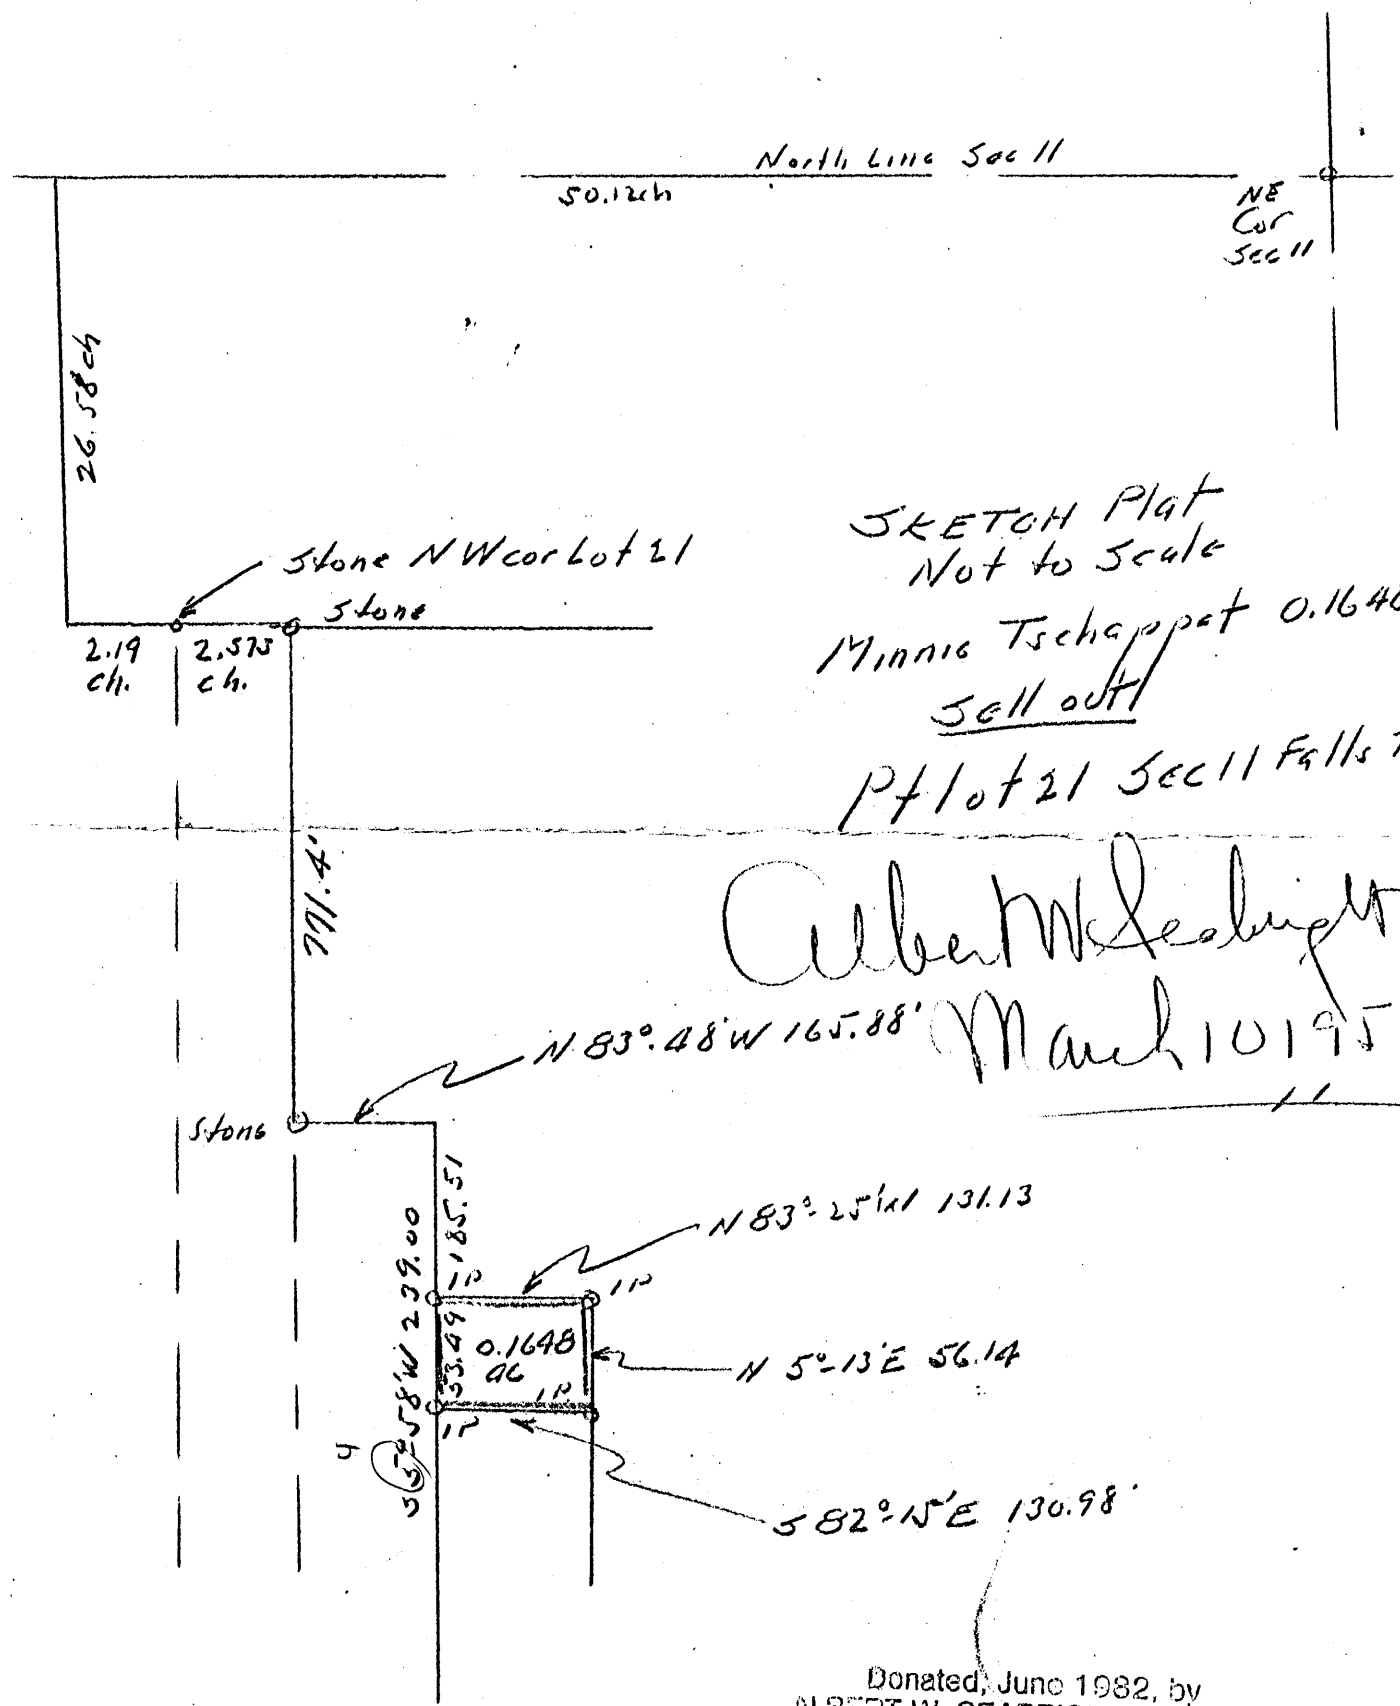 North Line Sec 11
50.12ch
NE
Cor
Sec 11
26.58 ch
Stone N W cor Lot 21
Stone
2.19
ch.
2.573
ch.
SKETCH Plat
Not to Scale
Minnie Tschappat 0.1648
Sell out
Pt lot 21 Sec 11 Falls
Albert W Seabright
March 10 195
771.4'
N 83°-48'W 165.88'
Stone
185.51
N 83°-25'W 131.13
IP
IP
S 5°-58'W 239.00
4
53.49
0.1648
ac
N 5°-13'E 56.14
IP
IP
S 82°-15'E 130.98'
Donated, June 1982, by
ALBERT W.